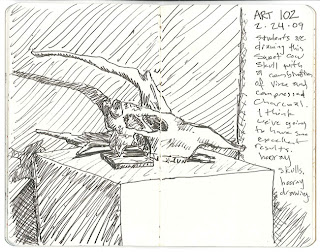 ART 102
2.24.09
students are
drawing this
sweet cow
skull with
a combination
of vine and
compressed
charcoal.
I think
we're going
to have some
excellent
results.
hooray
skulls,
hooray
drawing